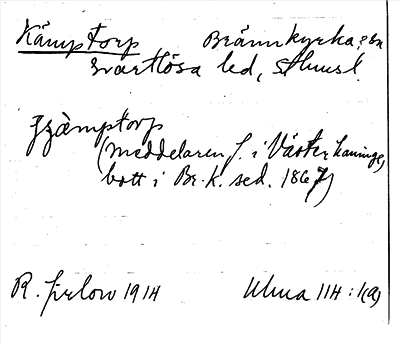 Kämptorp Brännkyrka, sn
Svartlösa hd, Sthmsl.
(meddelaren f. i Västerhaninge,
bott i Br.k. sed. 1867)
R. 1914 Ulma 114 : 1(a)